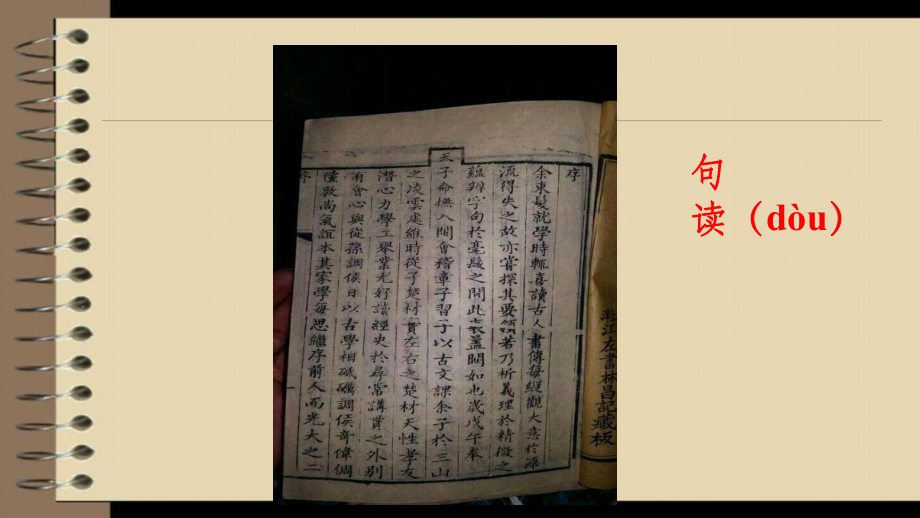 句
读（dòu）
序
余束髮就學時輒喜讀古人書傳每縱觀大意於源
流得失之故亦嘗探其要領若乃析義理於精微之
蘊辨字句於毫髮之間此衷蓋闕如也歲戊午奉
天子命撫八閩會稽章子習子以古文課余子於三山
之凌雲處維時從子楚材實左右之楚材天性孝友
潛心力學工舉業尤好讀經史於尋常講貫之外別
有會心與從孫調侯日以古學相砥礪調侯奇偉倜
儻敦尚氣誼本其家學每思繼序前人而光大之二
序
江左書林昌記藏板